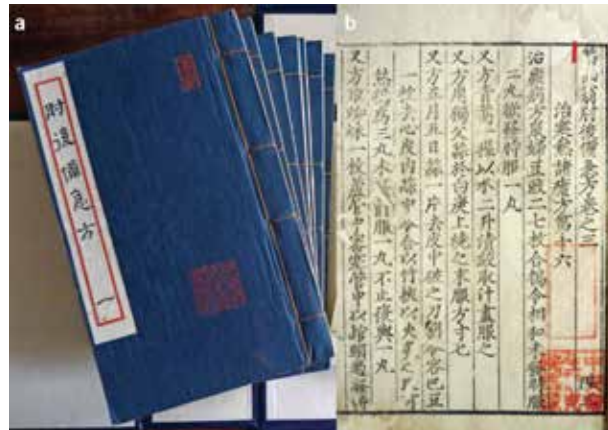 a
肘後備急方 一
b
葛仙翁肘後備急方卷之三
治寒熱諸瘧方第十六
治瘧病方鼠婦豆豉二七枚合搗令相和未發時服
二丸欲發時服一丸
又方青蒿一握以水二升漬絞取汁盡服之
又方用獨父蒜於白炭上燒之末服方寸匕
又方五月五日蒜一片去皮中破之刀割令容巴豆
一枚去心皮內蒜中令合以竹挾以火炙之取可
熱搗為三丸未發前服一丸不止復與一丸
又方取蜘蛛一枚蘆管中密塞管中以綰頸過發時